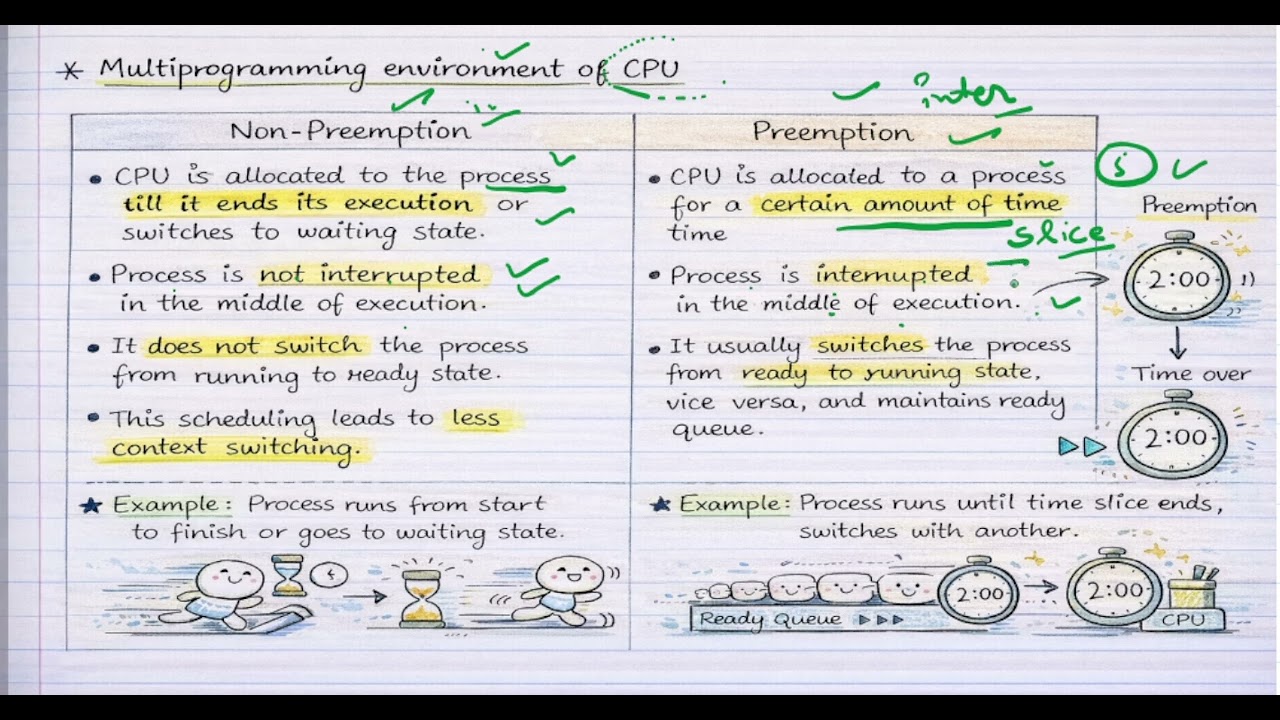 * Multiprogramming environment of CPU
inter
Non-Preemption
Preemption
• CPU is allocated to the process
till it ends its execution or
switches to waiting state.
• Process is not interrupted
in the middle of execution.
• It does not switch the process
from running to ready state.
• This scheduling leads to less
context switching.
★ Example: Process runs from start
to finish or goes to waiting state.
• CPU is allocated to a process
for a certain amount of time
time
slice
• Process is internupted
in the middle of execution.
• It usually switches the process
from ready to running state,
vice versa, and maintains ready
queue.
★ Example: Process runs until time slice ends,
switches with another.
Ready Queue
2:00
2:00
CPU
Preemption
2:00
Time over
2:00